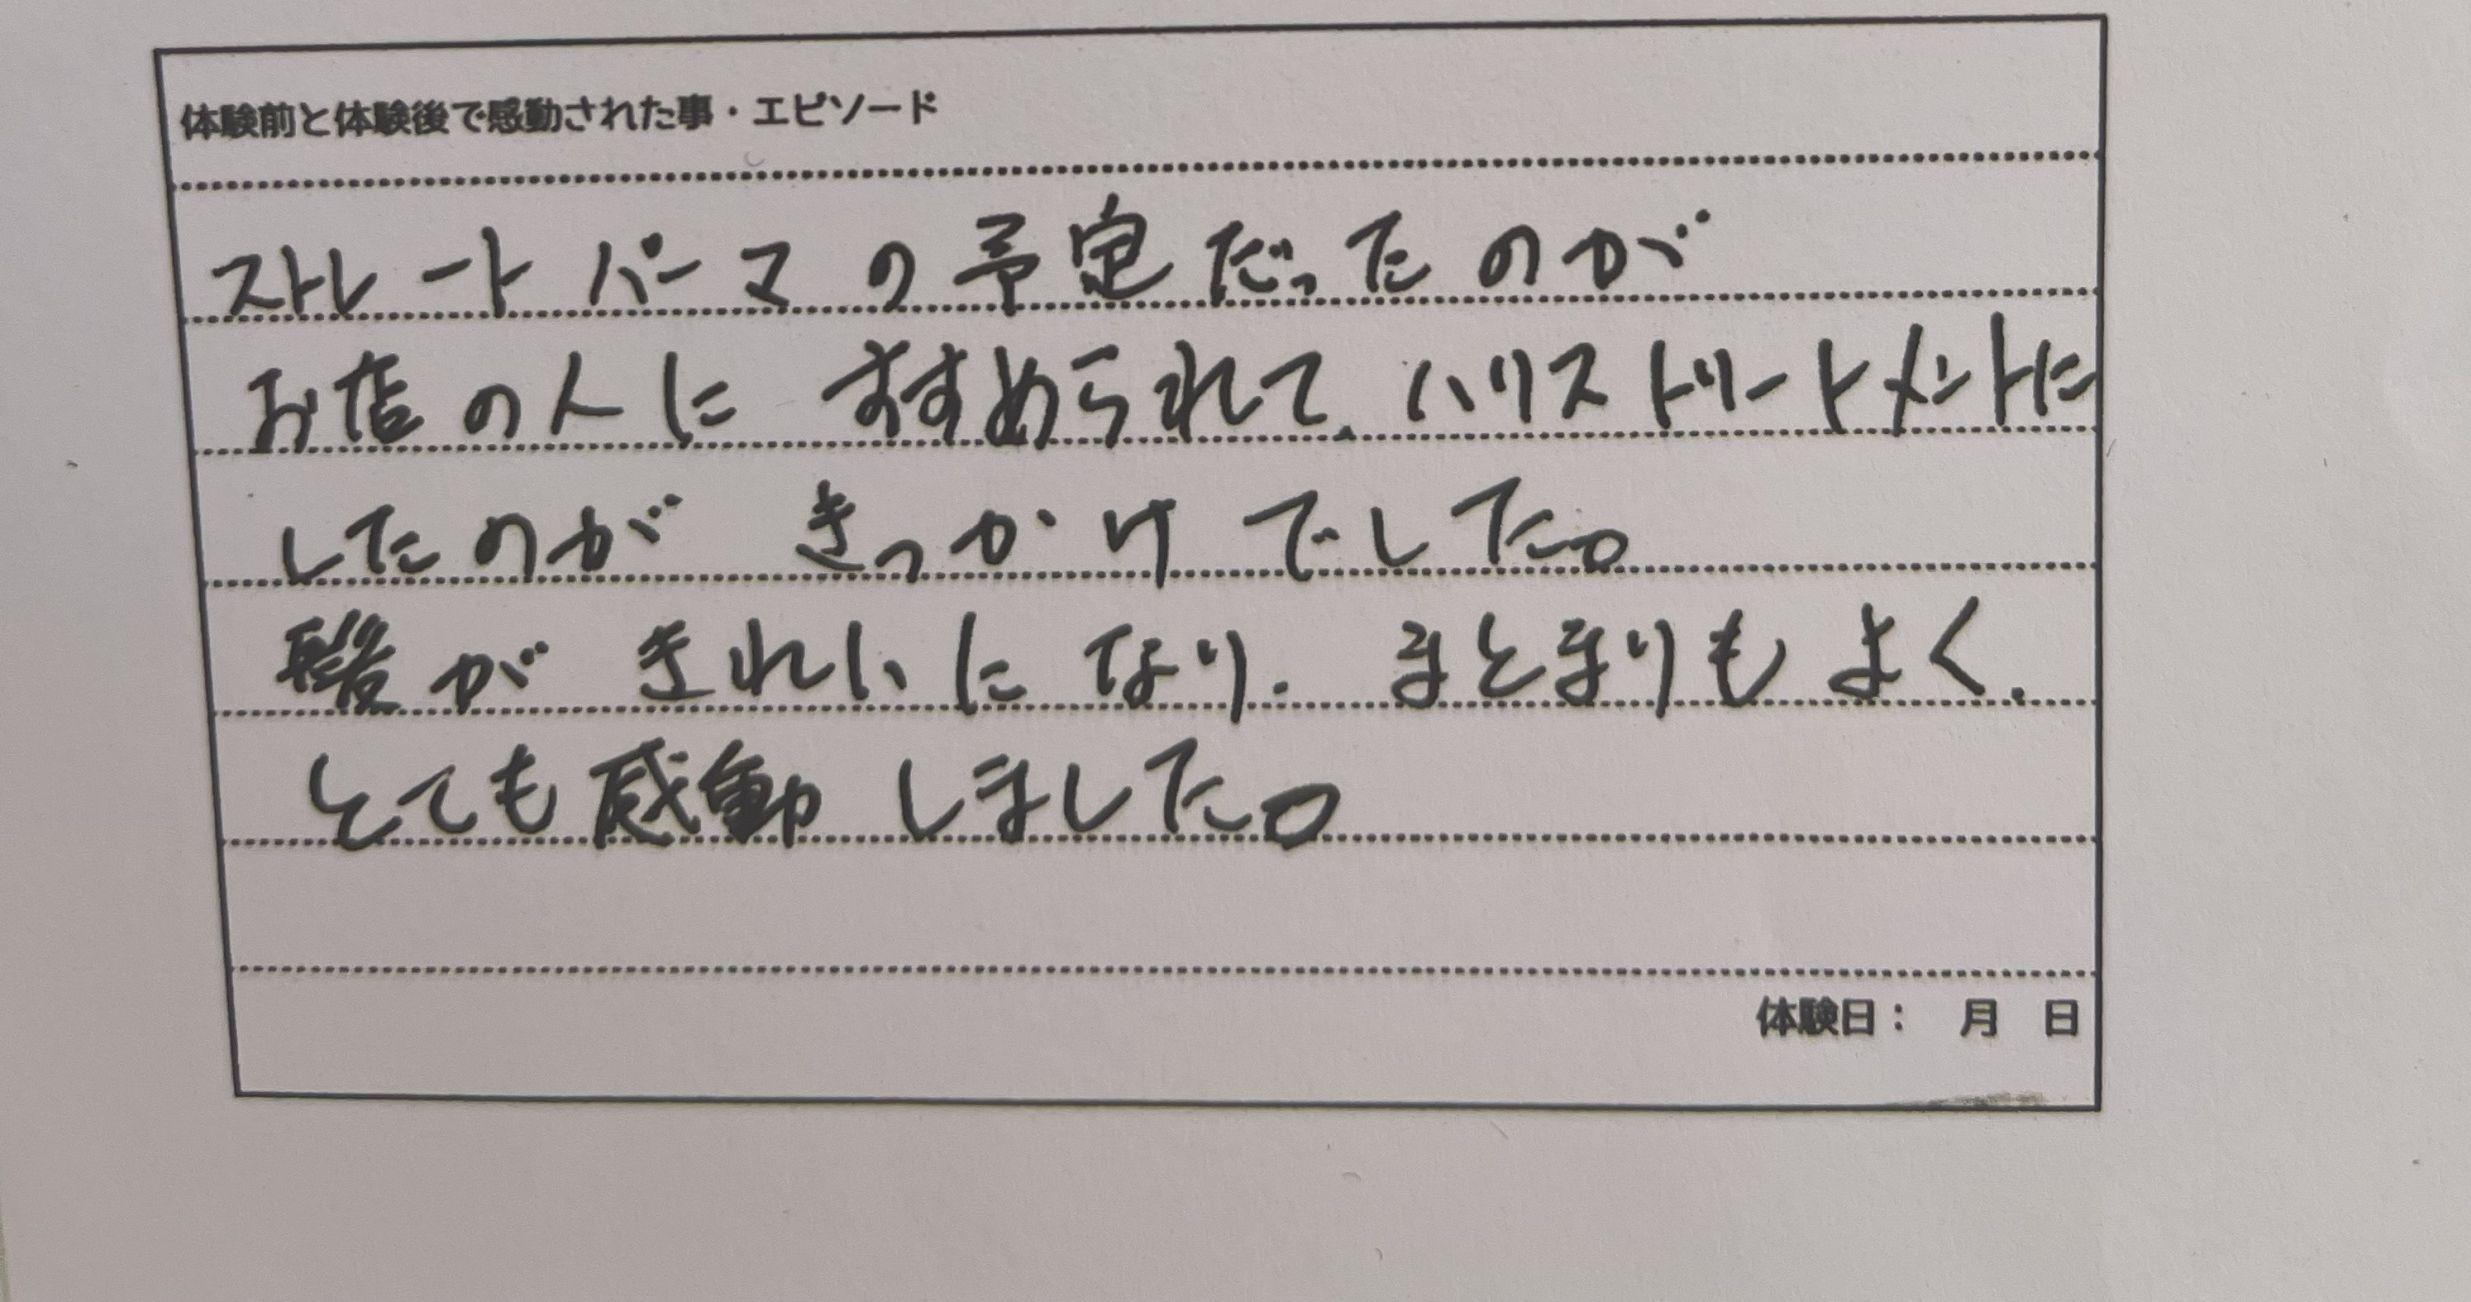 体験前と体験後で感動された事・エピソード
ストレートパーマの予定だったのが
お店の人にすすめられて、ハリストリートメントに
したのがきっかけでした。
髪がきれいになり、まとまりもよく、
とても感動しました。
体験日： 月 日